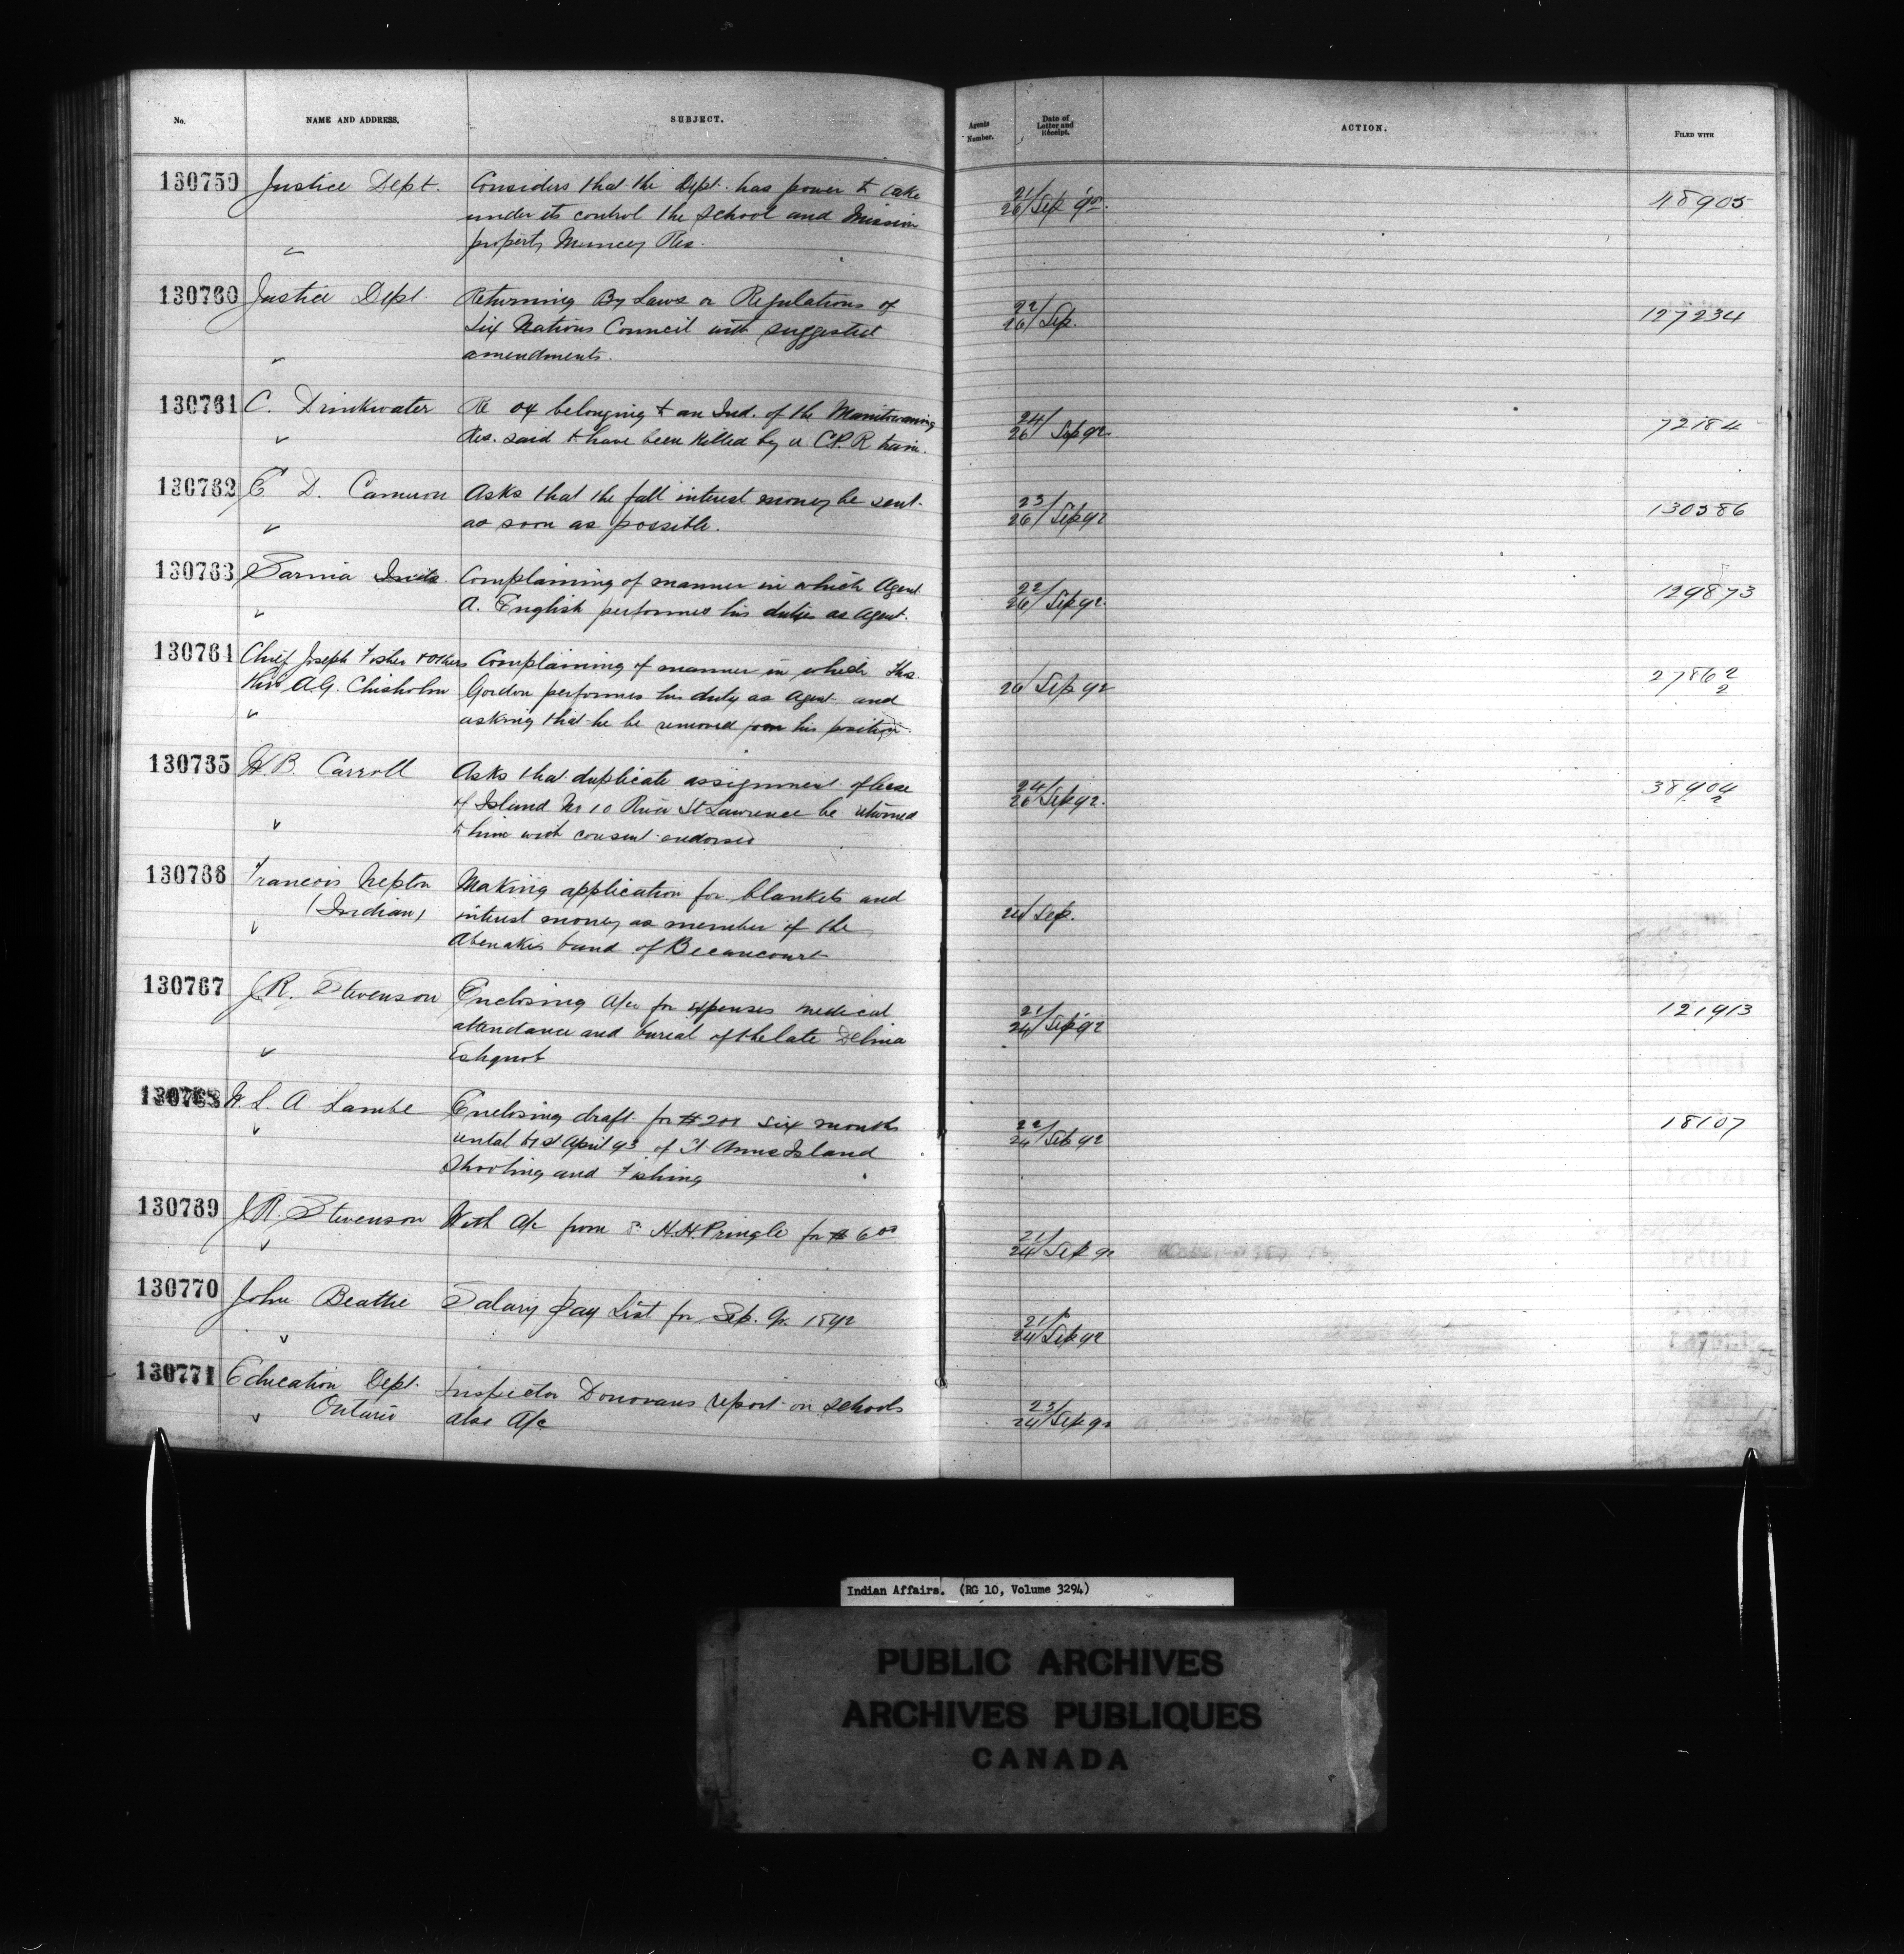 No. NAME AND ADDRESS. SUBJECT. Agents Number. Date of Letter and Receipt. ACTION. FILED WITH
130759 Justice Dept. Considers that the Dept. has power to take 21/26 Sep 92. 48905
under its control the school and Mission
property Muncey Res.
130760 Justice Dept. Returning By Laws or Regulations of 22/26 Sep. 127234
Six Nations Council with suggested
amendments.
130761 C. Drinkwater Re ox belonging to an Ind. of the Manitowaning 24/26 Sep 92 72184
Res. said to have been killed by a C.P.R train.
130762 E D. Cameron Asks that the fall interest money be sent 23/26 Sep 92 130586
as soon as possible.
130763 Sarnia Inds. Complaining of manner in which Agent 22/26 Sep 92. 129873
A. English performes his duties as Agent.
130764 Chief Joseph Fisher & Others Complaining of manner in which Thos. 26 Sep 92 27862/2
A.G. Chisholm Gordon performes his duty as Agent and
asking that he be removed from his position.
130765 W.B. Carroll Asks that duplicate assignment of lease 24/26 Sep 92. 38904/2
of Island No 10 River St Lawrence be returned
to him with consent endorsed
130766 Francois Nepton Making application for blankets and 24 Sep.
(Indian) interest money as member of the
Abenakis band of Becancourt
130767 J.R. Stevenson Enclosing a/c for expenses medical 21/24 Sep 92 121913
attendance and burial of the late Delina
Eshquot
130768 W. L. A. Lambe Enclosing draft for $201 six months 22/24 Sep 92 18107
rental to 1st April 93 of St Anns Island
Shooting and Fishing
130769 J.R. Stevenson With a/c from H.H. Pringle for $6.00 21/24 Sep 92
130770 John Beattie Salary Pay List for Sep. Qr. 1892 21/24 Sep 92
130771 Education Dept. Inspector Donovans report on schools 23/24 Sep 92
Ontario also A/c
Indian Affairs. (RG 10, Volume 3294)
PUBLIC ARCHIVES
ARCHIVES PUBLIQUES
CANADA